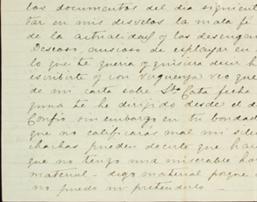 los documentos del dia siguient
tar en mis desvelos la mala fé
de la actualidad y los desengañ
Deseoso, ansioso de esplayar en
lo que te queria y quisiera decir h
escribirte y con verguenza veo que
de mi carta sobre Sta Cata fecha
guna te he dirijido desde el d
Confio sin embargo en tu bondad
que no calificarás mal mi silen
charlas pueden decirte que hai
que no tengo una miserable hor
material - digo material porque
no puedo ni pretenderlo -